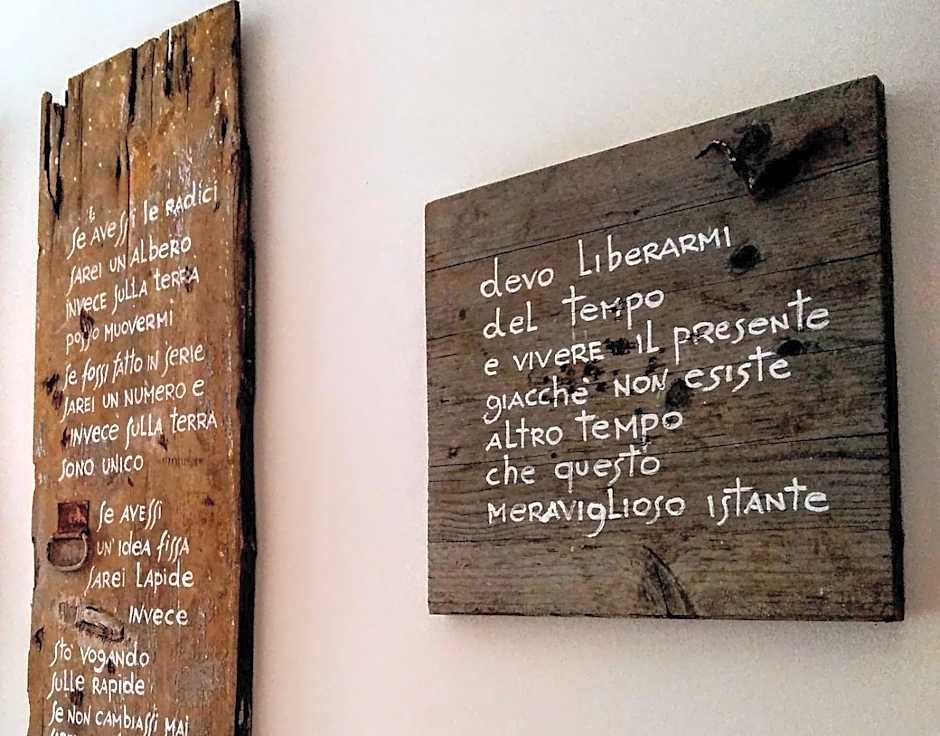 se avessi le radici
sarei un albero
invece sulla terra
posso muovermi
se fossi fatto in serie
sarei un numero e
invece sulla terra
sono unico
se avessi
un'idea fissa
sarei lapide
invece
sto vogando
sulle rapide
se non cambiassi mai
devo liberarmi
del tempo
e vivere il presente
giacchè non esiste
altro tempo
che questo
meraviglioso istante